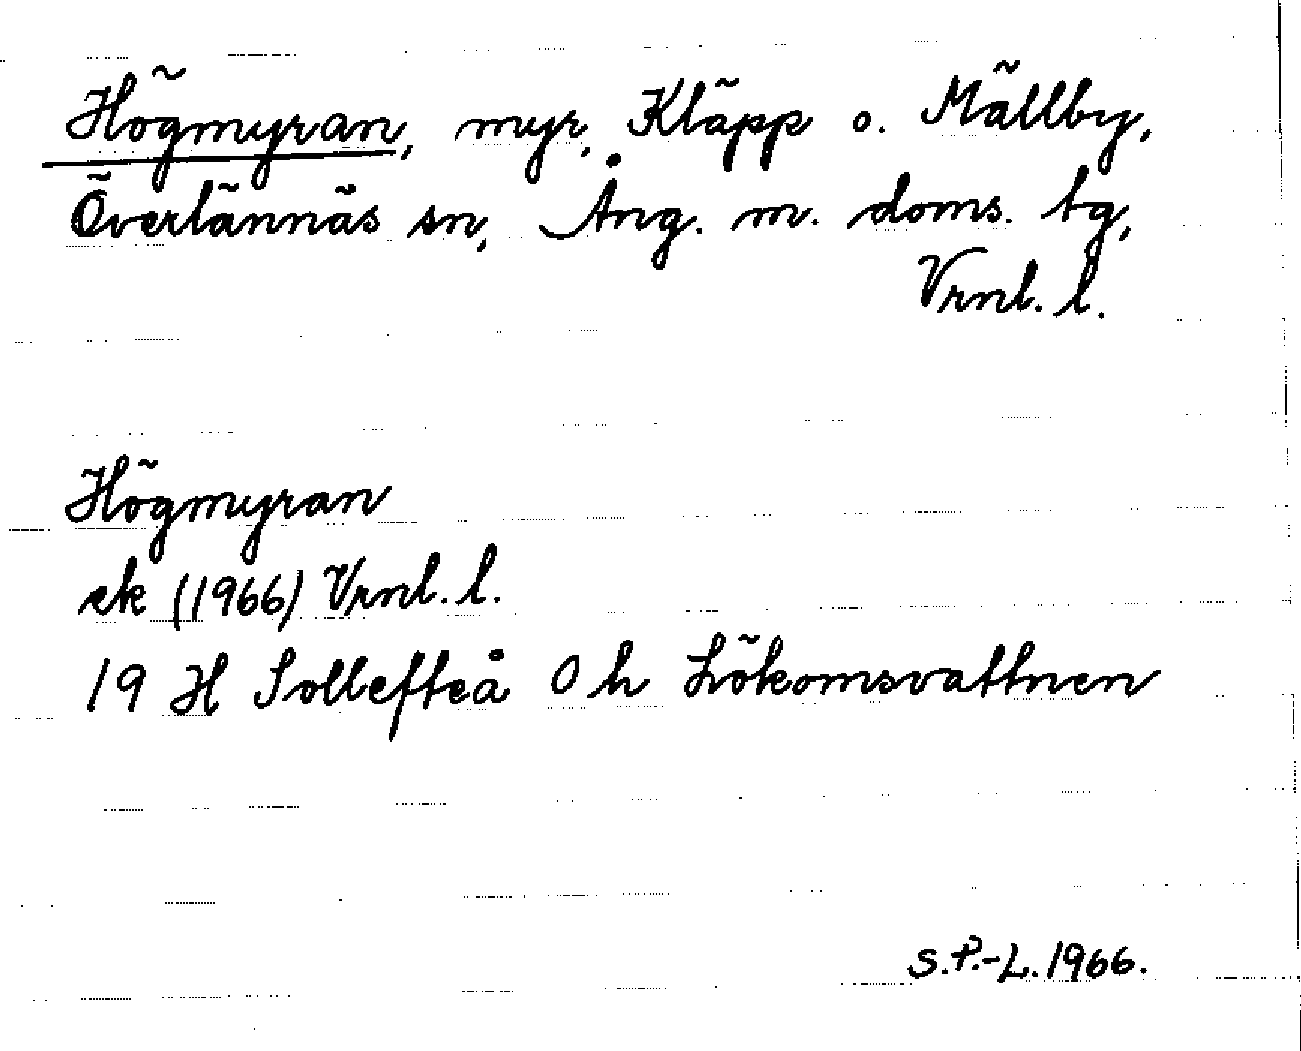 Högmyran, myr, Kläpp o. Mällby,
Överlännäs sn, Ång. m. doms. tg,
Vrnl. l.
Högmyran
ek (1966) Vrnl. l.
19 H Sollefteå 0 h Lökomsvattnen
S.P.-L. 1966.